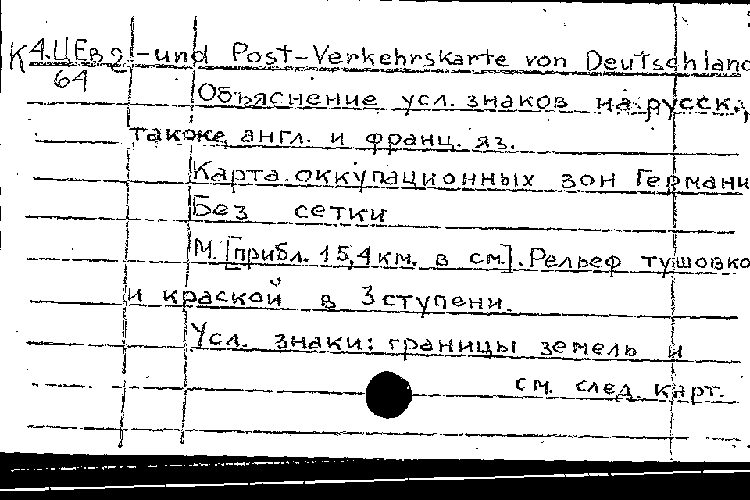 К4.ЦЕв2 -und Post-Verkehrskarte von Deutschland
64
Объяснение усл. знаков на русск.,
также англ. и франц. яз.
Карта оккупационных зон Германи
Без сетки
М. [прибл. 15,4 км. в см]. Рельеф тушовко
и краской в 3 ступени.
Усл. знаки: границы земель и
см. след. карт.